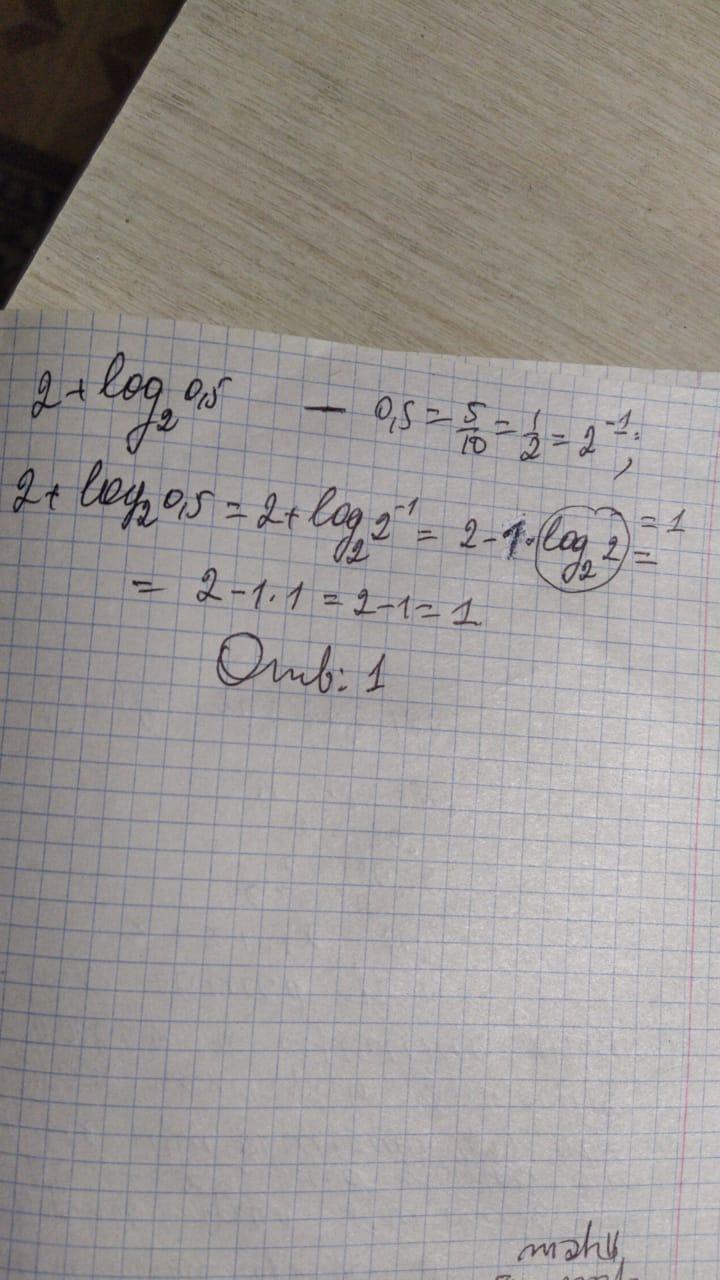 2 + log₂ 0,5 — 0,5 = 5/10 = 1/2 = 2⁻¹;
2 + log₂ 0,5 = 2 + log₂ 2⁻¹ = 2 - 1 · log₂ 2 = 1 =
= 2 - 1 · 1 = 2 - 1 = 1
Отв: 1